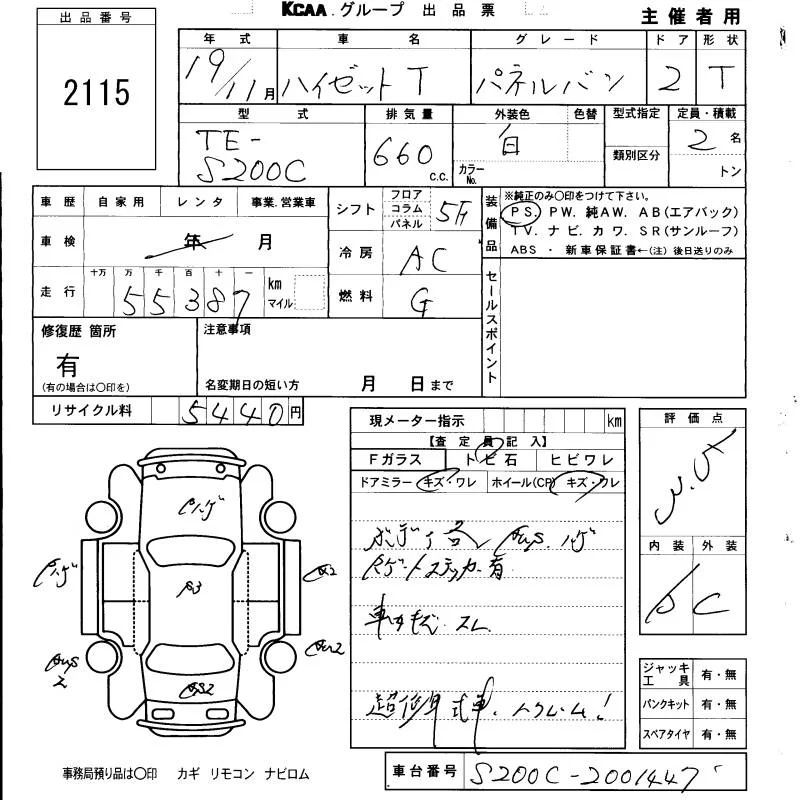 KCAA.グループ 出品票
主催者用
出品番号
2115
年式 車名 グレード ドア 形状
19/11月 ハイゼットT パネルバン 2 T
型式 排気量 外装色 色替 型式指定 定員・積載
TE-
S200C
660 c.c. 白 カラーNo. 類別区分 2名
トン
車歴 自家用 レンタ 事業.営業車
車検 年 月
走行 十万 万 千 百 十 一
55387 km マイル
シフト フロア コラム パネル 5F
冷房 AC
燃料 G
装備品
※純正のみ〇印をつけて下さい。
PS. PW. 純AW. AB(エアバック)
TV. ナビ. カワ. SR(サンルーフ)
ABS ・ 新車保証書←(注) 後日送りのみ
セールスポイント
修復歴 箇所
有
(有の場合は〇印を)
注意事項
名変期日の短い方 月 日まで
リサイクル料 5440円
現メーター指示 km
【査定員記入】
Fガラス トビ石 ヒビワレ
ドアミラー キズ・ワレ ホイール(CP) キズ・ワレ
ステッカー有
スレ
評価点
内装 外装
C
ジャッキ
工具 有・無
パンクキット 有・無
スペアタイヤ 有・無
事務局預り品は〇印 カギ リモコン ナビロム
車台番号 S200C-2001447